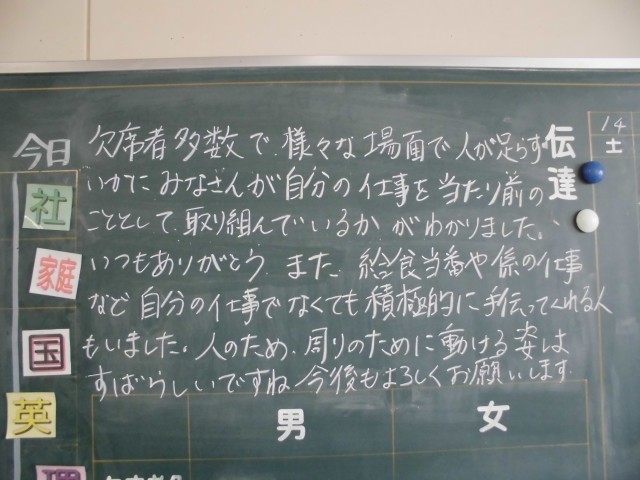 今日
伝達
欠席者多数で、様々な場面で人が足らず
いかに みなさんが自分の仕事を当たり前の
こととして、取り組んでいるか がわかりました。
いつもありがとう また、給食当番や係の仕事
など 自分の仕事でなくても積極的に手伝ってくれる人
もいました。人のため、周りのために動ける姿は
すばらしいですね 今後もよろしくお願いします
14
土
社
家庭
国
英
男
女